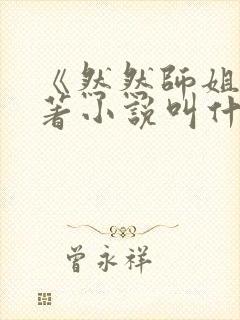 《然然师姐
著小说叫什
曾永祥